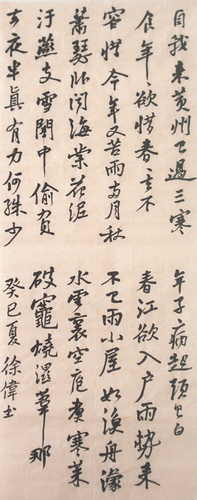 自我来黄州已過三寒
食年欲惜春去不
容惜今年又苦雨兩月秋
蕭瑟卧聞海棠花泥
汙燕支雪闇中偷負
去夜半真有力何殊少
年子病起頭已白
春江欲入户雨勢来
不已雨小屋如漁舟濛
水雲裏空庖煮寒菜
破竈燒濕葦那
癸巳夏徐偉書